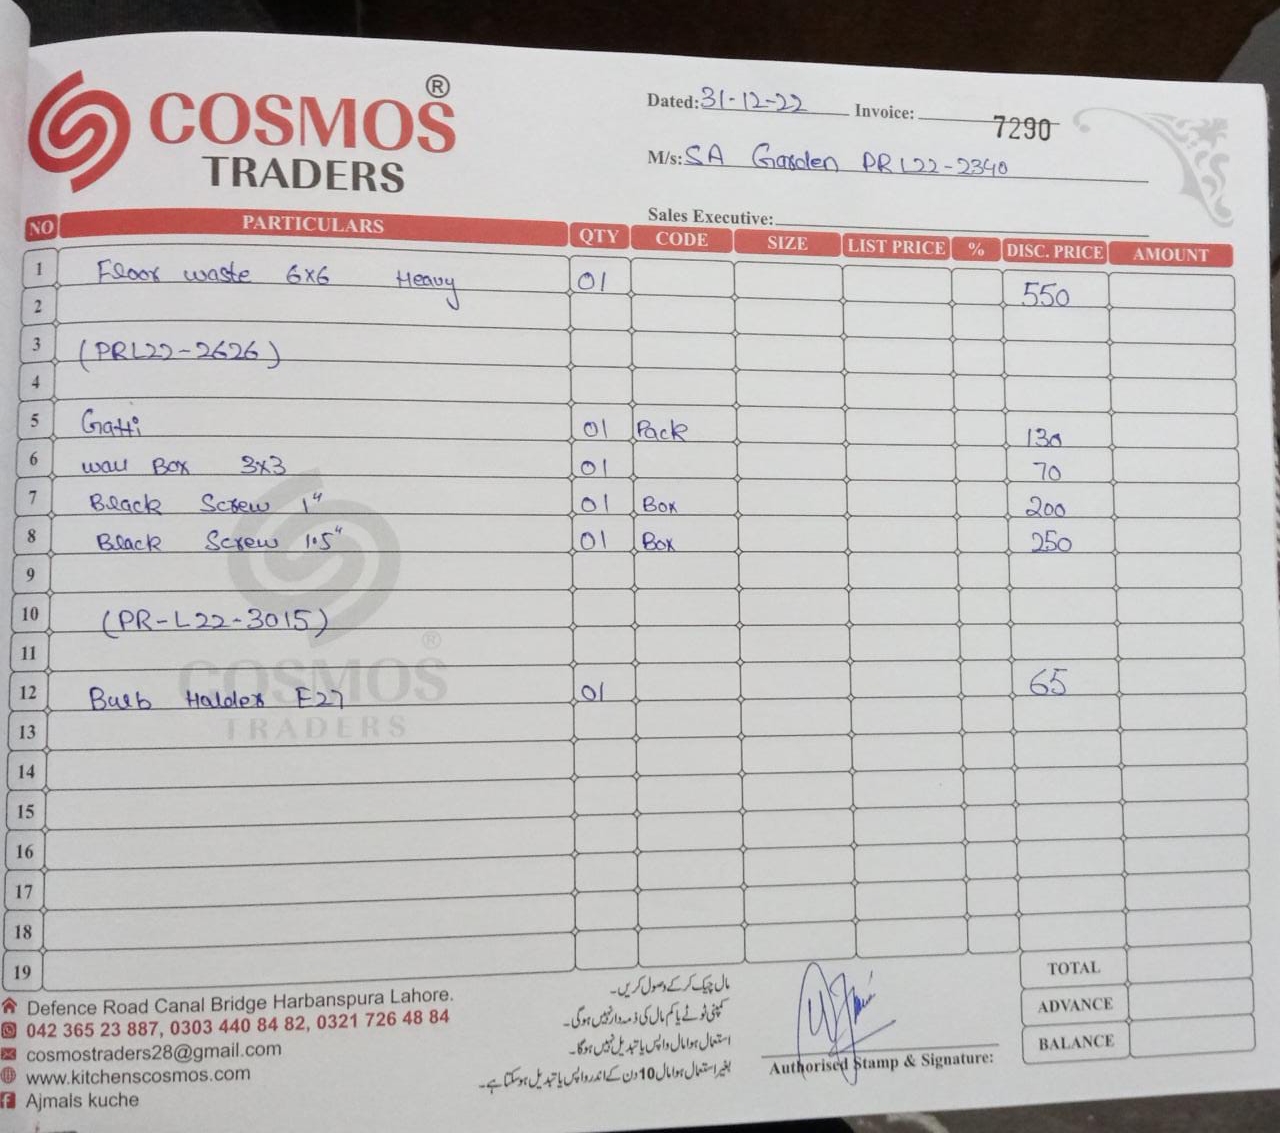 COSMOS ®
TRADERS
Dated: 31-12-22 Invoice: 7290
M/s: SA Garden PRL22-2340
Sales Executive:
NO PARTICULARS QTY CODE SIZE LIST PRICE % DISC. PRICE AMOUNT
1 Floor waste 6x6 Heavy 01 550
2
3 (PRL22-2626)
4
5 Gatti 01 Pack 130
6 wall Box 3x3 01 70
7 Black Screw 1" 01 Box 200
8 Black Screw 1.5" 01 Box 250
9
10 (PR-L22-3015)
11
12 Bulb Holder E27 01 65
13
14
15
16
17
18
19
COSMOS ®
TRADERS
TOTAL
ADVANCE
BALANCE
Defence Road Canal Bridge Harbanspura Lahore.
042 365 23 887, 0303 440 84 82, 0321 726 48 84
cosmostraders28@gmail.com
www.kitchenscosmos.com
Ajmals kuche
مال چیک کر کے وصول کریں۔
کمپنی ٹوٹے یا کم مال کی ذمہ دار نہیں ہوگی۔
استعمال ہوا مال واپس یا تبدیل نہیں ہوگا۔
بغیر استعمال ہوا مال 10 دن کے اندر واپس یا تبدیل ہوسکتا ہے۔
Authorised Stamp & Signature: